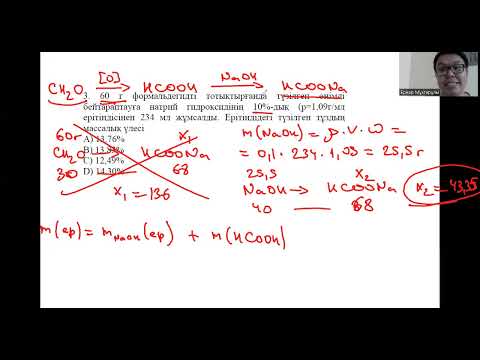 CH₂O [O] → HCOOH NaOH → HCOONa
3. 60 г формальдегидті тотықтырғанда түзілген өнімді
бейтараптауға натрий гидроксидінің 10%-дық (p=1,09г/мл
ерітіндісінен 234 мл жұмсалды. Ерітіндідегі түзілген тұздың
массалық үлесі
A) 13,76%
C) 12,49%
D) 14,30%
60г x₁
CH₂O HCOONa
30 68
x₁ = 136
m(NaOH) = ρ · V · ω =
= 0,1 · 234 · 1,09 = 25,5 г
25,5 x₂
NaOH → HCOONa
40 — 68
x₂ = 43,35
m(ер) = m NaOH (ер) + m(HCOOH)